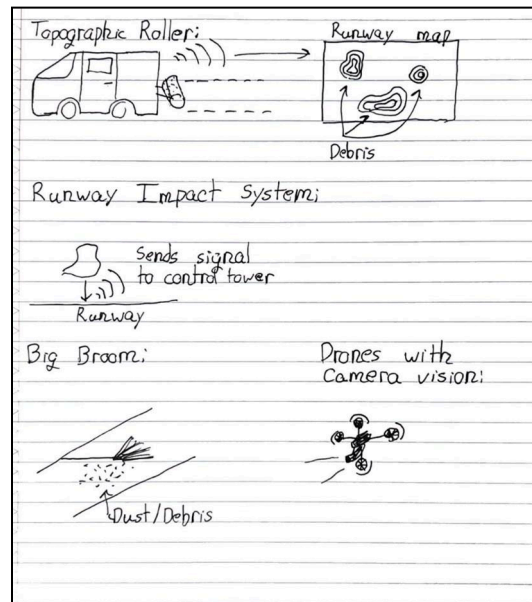 Topographic Roller:
Runway map
Debris
Runway Impact System;
Sends signal
to control tower
Runway
Big Broom;
Dust/Debris
Drones with
Camera vision;